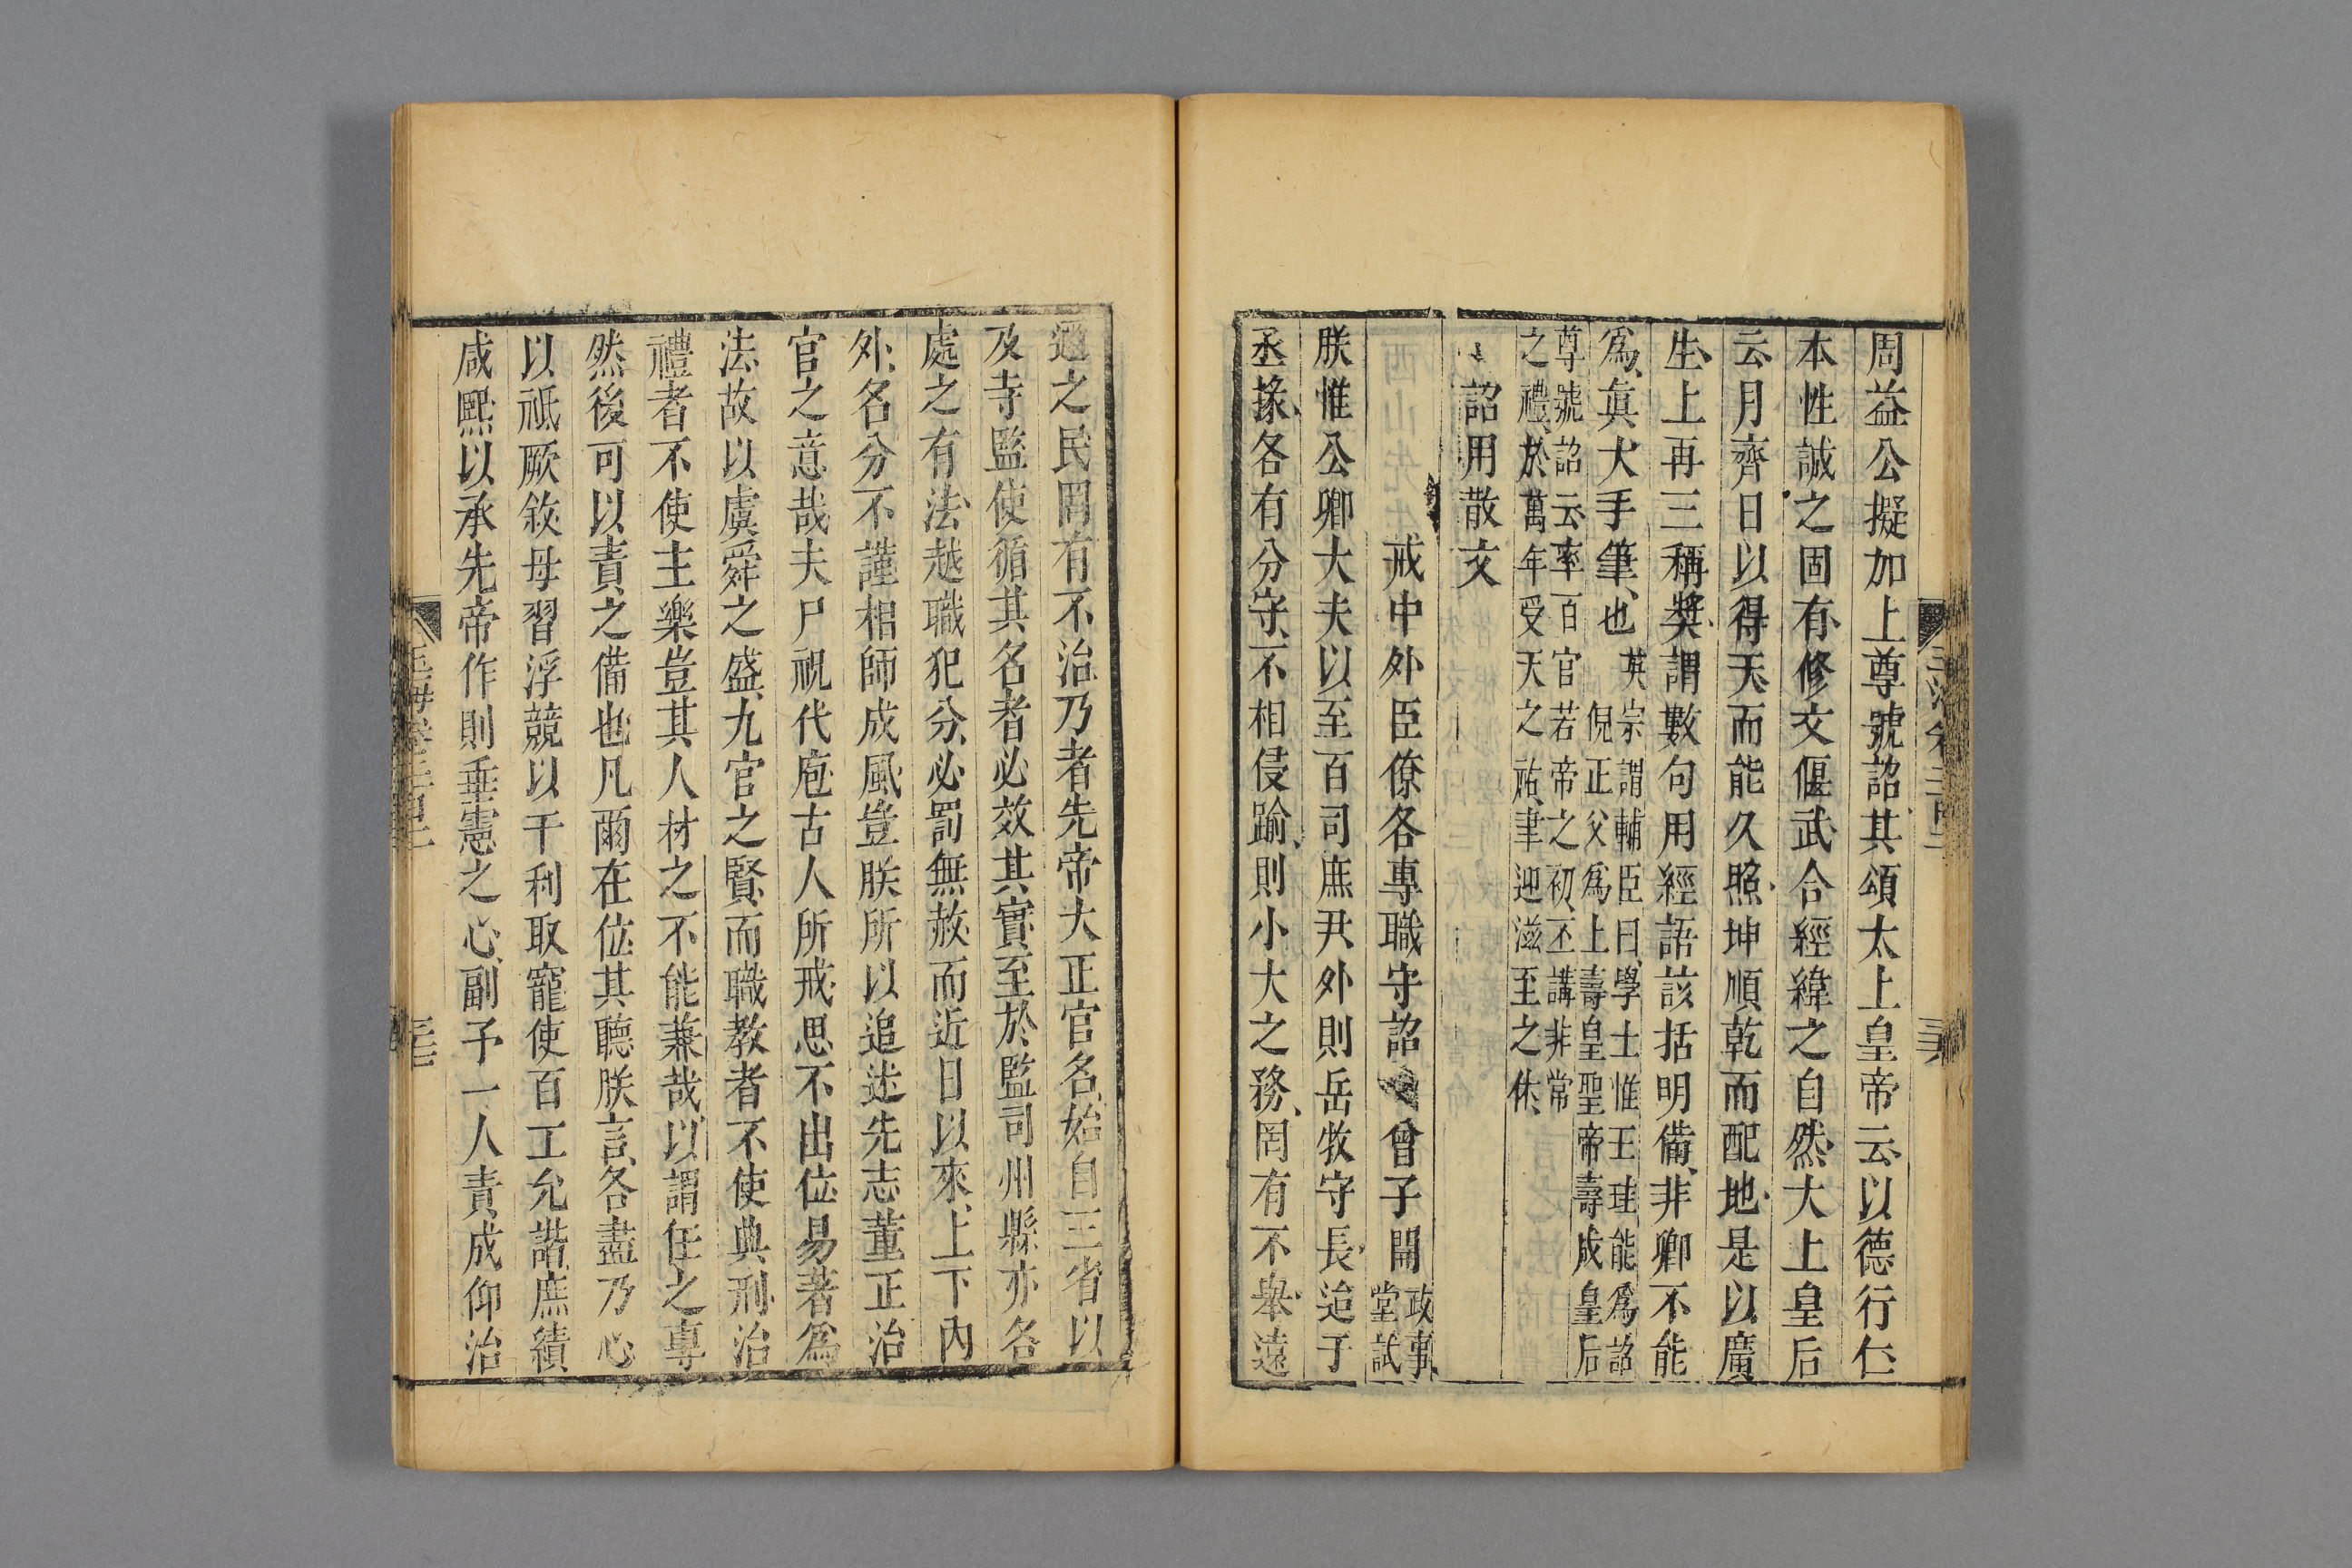 周益公擬加上尊號詔其頌太上皇帝云以德行仁
本性誠之固有修文偃武合經緯之自然大上皇后
云月齊日以得天而能久照坤順乾而配地是以廣
生上再三稱奬謂數句用經語該括明備非卿不能
爲眞大手筆也
英宗謂輔臣曰學士惟王珪能爲詔
倪正父爲上壽皇聖帝壽成皇后
尊號詔云率百官若帝之初丕講非常
之禮於萬年受天之祜聿迎滋至之休
詔用散文
戒中外臣僚各專職守詔
曾子開
政事
堂試
朕惟公卿大夫以至百司庶尹外則岳牧守長迨于
丞掾各有分守不相侵踰則小大之務罔有不舉遠
邇之民罔有不治乃者先帝大正官名始自三省以
及寺監使循其名者必效其實至於監司州縣亦各
處之有法越職犯分必罰無赦而近日以來上下內
外名分不謹相師成風豈朕所以追述先志董正治
官之意哉夫尸祝代庖古人所戒思不出位易著爲
法故以虞舜之盛九官之賢而職教者不使典刑治
禮者不使主樂豈其人材之不能兼哉以謂任之專
然後可以責之備也凡爾在位其聽朕言各盡乃心
以祗厥敘毋習浮競以干利取寵使百工允諧庶績
咸熙以承先帝作則垂憲之心副予一人責成仰治